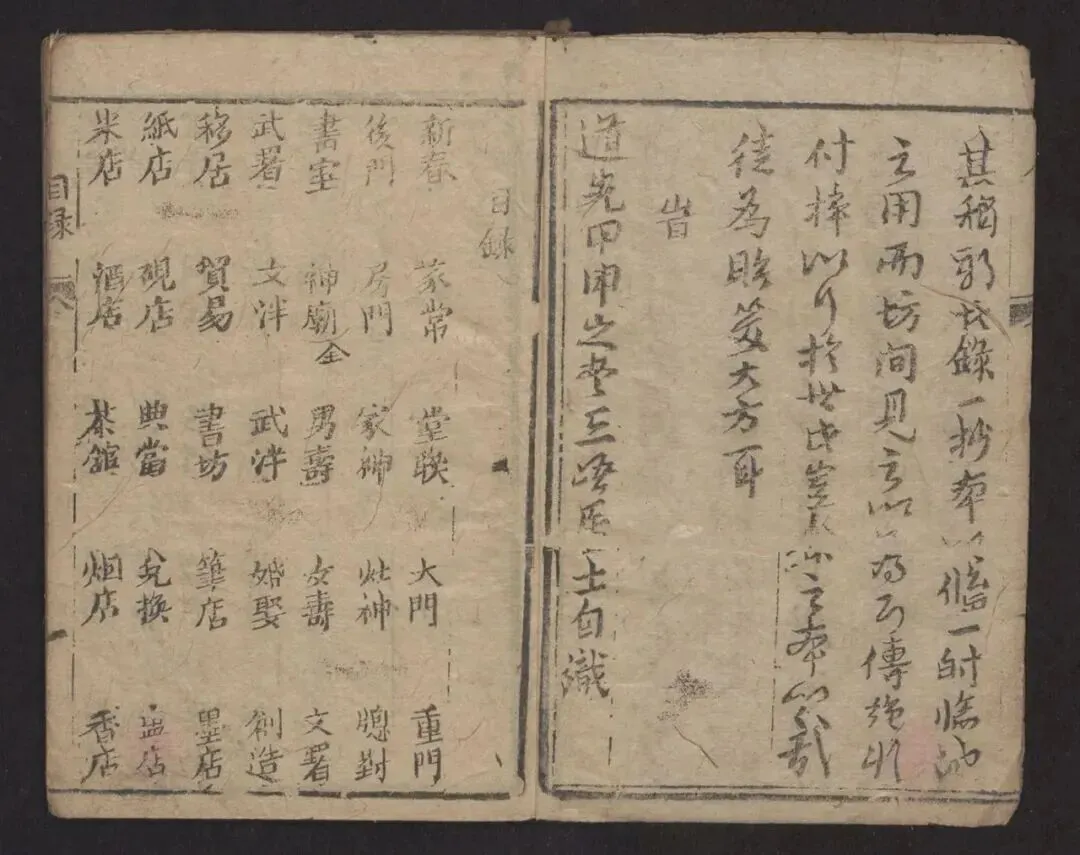 其稱部氏錄一抄本以備一時臨池
之用而坊間見之以為可傳
付梓以行於世此豈
徒為貽笑大方耳
旹
道光甲申之冬三 居士自識
目錄
新春 家常 堂聯 大門 重門
後門 房門 家神 灶神 牕對
書室 神廟全 男壽 女壽 文署
武署 文泮 武泮 婚娶 創造
移居 貿易 書坊 筆店 墨店
紙店 硯店 典當 兌換 盐店
米店 酒店 茶館 烟店 香店
目錄 一